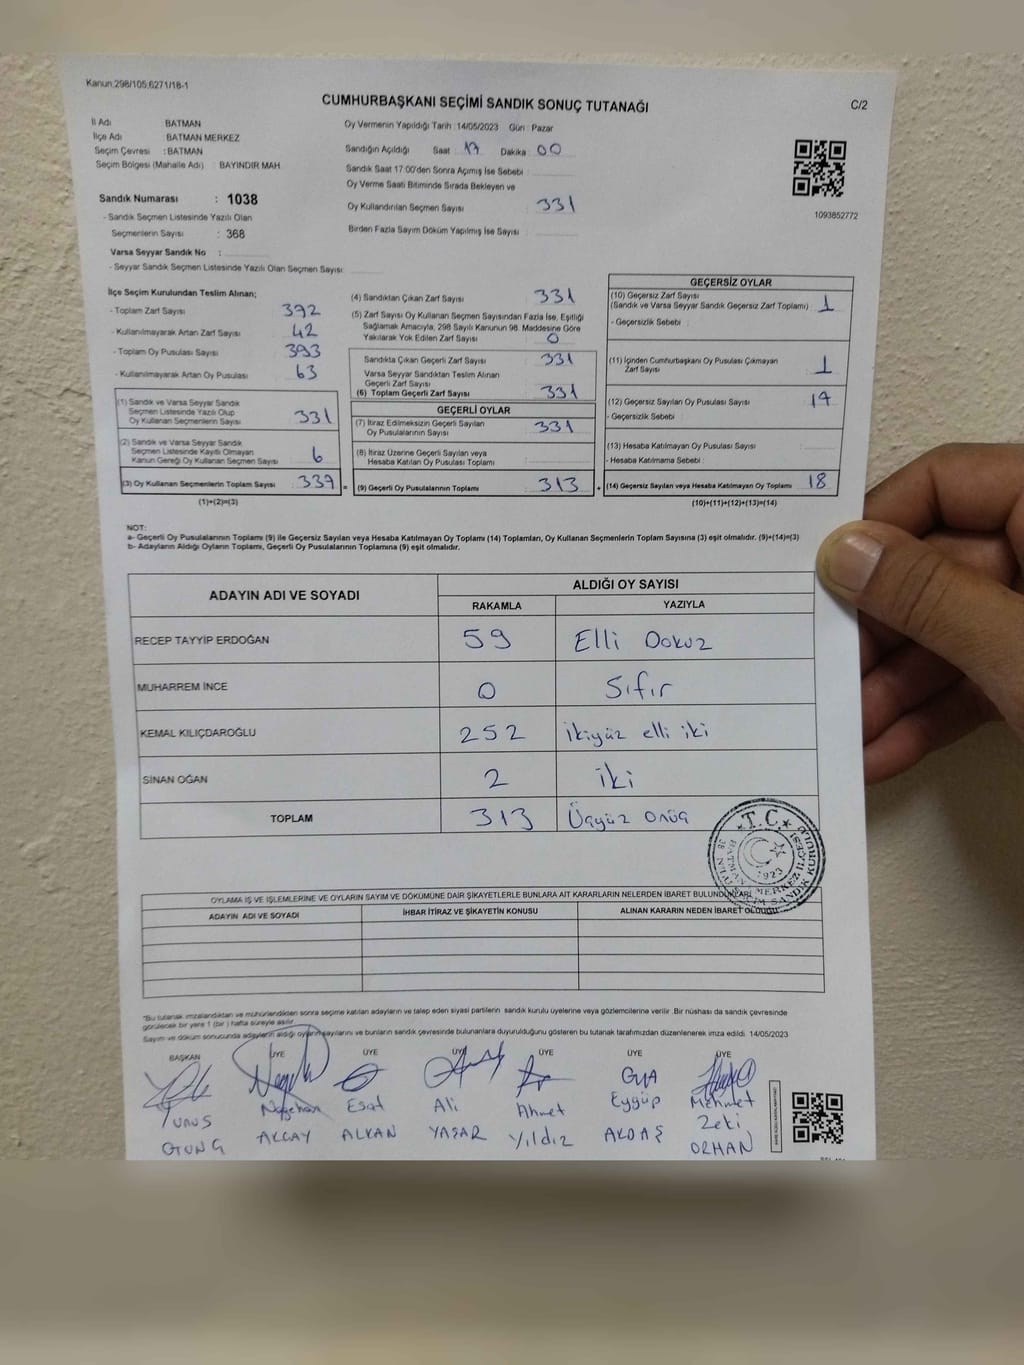 Kanun:298/105,6271/18-1
CUMHURBAŞKANI SEÇİMİ SANDIK SONUÇ TUTANAĞI
C/2
İl Adı BATMAN
İlçe Adı BATMAN MERKEZ
Seçim Çevresi : BATMAN
Seçim Bölgesi (Mahalle Adı) : BAYINDIR MAH
Sandık Numarası : 1038
- Sandık Seçmen Listesinde Yazılı Olan
Seçmenlerin Sayısı : 368
Varsa Seyyar Sandık No :
- Seyyar Sandık Seçmen Listesinde Yazılı Olan Seçmen Sayısı:
Oy Vermenin Yapıldığı Tarih :14/05/2023 Gün : Pazar
Sandığın Açıldığı Saat : 17 Dakika : 00
Sandık Saat 17:00'den Sonra Açımış İse Sebebi :
Oy Verme Saati Bitiminde Sırada Bekleyen ve
Oy Kullandırılan Seçmen Sayısı : 331
Birden Fazla Sayım Döküm Yapılmış İse Sayısı :
1093852772
İlçe Seçim Kurulundan Teslim Alınan;
- Toplam Zarf Sayısı : 392
- Kullanılmayarak Artan Zarf Sayısı : 42
- Toplam Oy Pusulası Sayısı : 393
- Kullanılmayarak Artan Oy Pusulası : 63
(1) Sandık ve Varsa Seyyar Sandık
Seçmen Listesinde Yazılı Olup
Oy Kullanan Seçmenlerin Sayısı : 331
(2) Sandık ve Varsa Seyyar Sandık
Seçmen Listesinde Kayıtlı Olmayan
Kanun Gereği Oy Kullanan Seçmen Sayısı : 6
(3) Oy Kullanan Seçmenlerin Toplam Sayısı : 337 =
(1)+(2)=(3)
(4) Sandıktan Çıkan Zarf Sayısı : 331
(5) Zarf Sayısı Oy Kullanan Seçmen Sayısından Fazla İse, Eşitliği
Sağlamak Amacıyla, 298 Sayılı Kanunun 98. Maddesine Göre
Yakılarak Yok Edilen Zarf Sayısı : 0
Sandıkta Çıkan Geçerli Zarf Sayısı : 331
Varsa Seyyar Sandıktan Teslim Alınan
Geçerli Zarf Sayısı
(6) Toplam Geçerli Zarf Sayısı : 331
GEÇERLİ OYLAR
(7) İtiraz Edilmeksizin Geçerli Sayılan
Oy Pusulalarının Sayısı : 331
(8) İtiraz Üzerine Geçerli Sayılan veya
Hesaba Katılan Oy Pusulası Toplamı :
(9) Geçerli Oy Pusulalarının Toplamı : 313 +
GEÇERSİZ OYLAR
(10) Geçersiz Zarf Sayısı
(Sandık ve Varsa Seyyar Sandık Geçersiz Zarf Toplamı) : 1
- Geçersizlik Sebebi :
(11) İçinden Cumhurbaşkanı Oy Pusulası Çıkmayan
Zarf Sayısı : 1
(12) Geçersiz Sayılan Oy Pusulası Sayısı :
- Geçersizlik Sebebi :
(13) Hesaba Katılmayan Oy Pusulası Sayısı :
- Hesaba Katılmama Sebebi :
(14) Geçersiz Sayılan veya Hesaba Katılmayan Oy Toplamı : 18
(10)+(11)+(12)+(13)=(14)
NOT:
a- Geçerli Oy Pusulalarının Toplamı (9) ile Geçersiz Sayılan veya Hesaba Katılmayan Oy Toplamı (14) Toplamları, Oy Kullanan Seçmenlerin Toplam Sayısına (3) eşit olmalıdır. (9)+(14)=(3)
b- Adayların Aldığı Oyların Toplamı, Geçerli Oy Pusulalarının Toplamına (9) eşit olmalıdır.
ADAYIN ADI VE SOYADI ALDIĞI OY SAYISI
RAKAMLA YAZIYLA
RECEP TAYYİP ERDOĞAN 59 Elli Dokuz
MUHARREM İNCE 0 Sıfır
KEMAL KILIÇDAROĞLU 252 İkiyüz elli iki
SİNAN OĞAN 2 iki
TOPLAM 313 Üçyüz Onüç
T.C.
1923
OYLAMA İŞ VE İŞLEMLERİNE VE OYLARIN SAYIM VE DÖKÜMÜNE DAİR ŞİKAYETLERLE BUNLARA AİT KARARLARIN NELERDEN İBARET BULUNDUKLARI
ADAYIN ADI VE SOYADI İHBAR İTİRAZ VE ŞİKAYETİN KONUSU ALINAN KARARIN NEDEN İBARET OLDUĞU
*Bu tutanak imzalandıktan ve mühürlendikten sonra seçime katılan adayların ve talep eden siyasi partilerin sandık kurulu üyelerine veya gözlemcilerine verilir. Bir nüshası da sandık çevresinde
görülecek bir yere 1 (bir ) hafta süreyle asılır.
Sayım ve döküm sonucunda adayların aldığı oyların sayılarını ve bunların sandık çevresinde bulunanlara duyurulduğunu gösteren bu tutanak tarafımızdan düzenlenerek imza edildi. 14/05/2023
BAŞKAN ÜYE ÜYE ÜYE ÜYE ÜYE ÜYE
YUNUS Esat Ali Ahmet Eyyüp Mehmet Zeki
AKÇAY ALKAN YAŞAR Yıldız AKDAŞ ORHAN